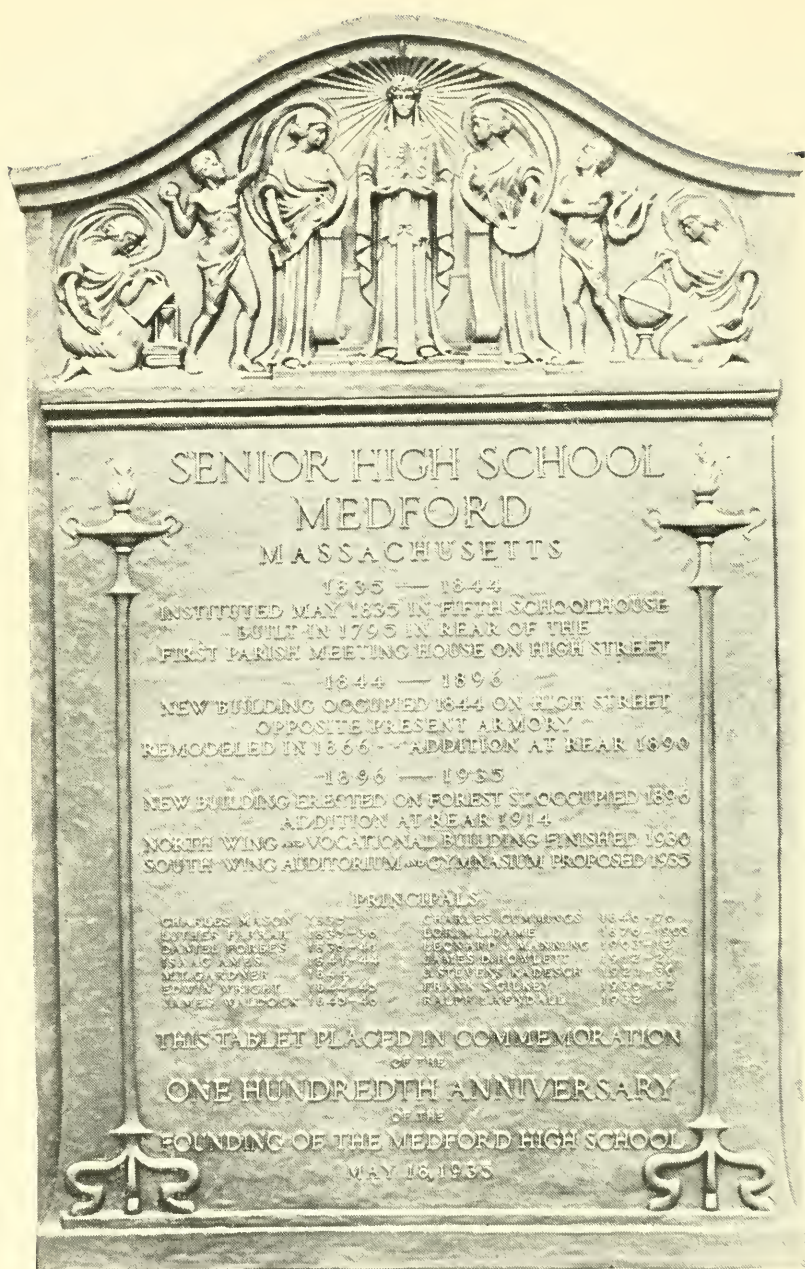 SENIOR HIGH SCHOOL
MEDFORD
MASSACHUSETTS
1835 — 1844
INSTITUTED MAY 1835 IN FIFTH SCHOOLHOUSE
BUILT IN 1795 IN REAR OF THE
FIRST PARISH MEETING HOUSE ON HIGH STREET
1844 — 1896
NEW BUILDING OCCUPIED 1844 ON HIGH STREET
OPPOSITE PRESENT ARMORY
REMODELED IN 1866 -- ADDITION AT REAR 1890
1896 — 1935
NEW BUILDING ERECTED ON FOREST ST. OCCUPIED 1896
ADDITION AT REAR 1914
NORTH WING AND VOCATIONAL BUILDING FINISHED 1930
SOUTH WING AUDITORIUM AND GYMNASIUM PROPOSED 1935
PRINCIPALS
CHARLES MASON 1835
LUTHER FARRAR 1835-36
DANIEL FORBES
ISAAC AMES
GARDNER
EDWIN WRIGHT
JAMES WALDOCK 1845-46
CHARLES CUMMINGS 1846-76
LORIN L. DAME 1876-1903
LEONARD J. MANNING 1903-12
JAMES D. HOWLETT
STEVENS KADESCH
FRANK S. GILKEY 1930-32
RALPH KENDALL 1932
THIS TABLET PLACED IN COMMEMORATION
OF THE
ONE HUNDREDTH ANNIVERSARY
OF THE
FOUNDING OF THE MEDFORD HIGH SCHOOL
MAY 1935